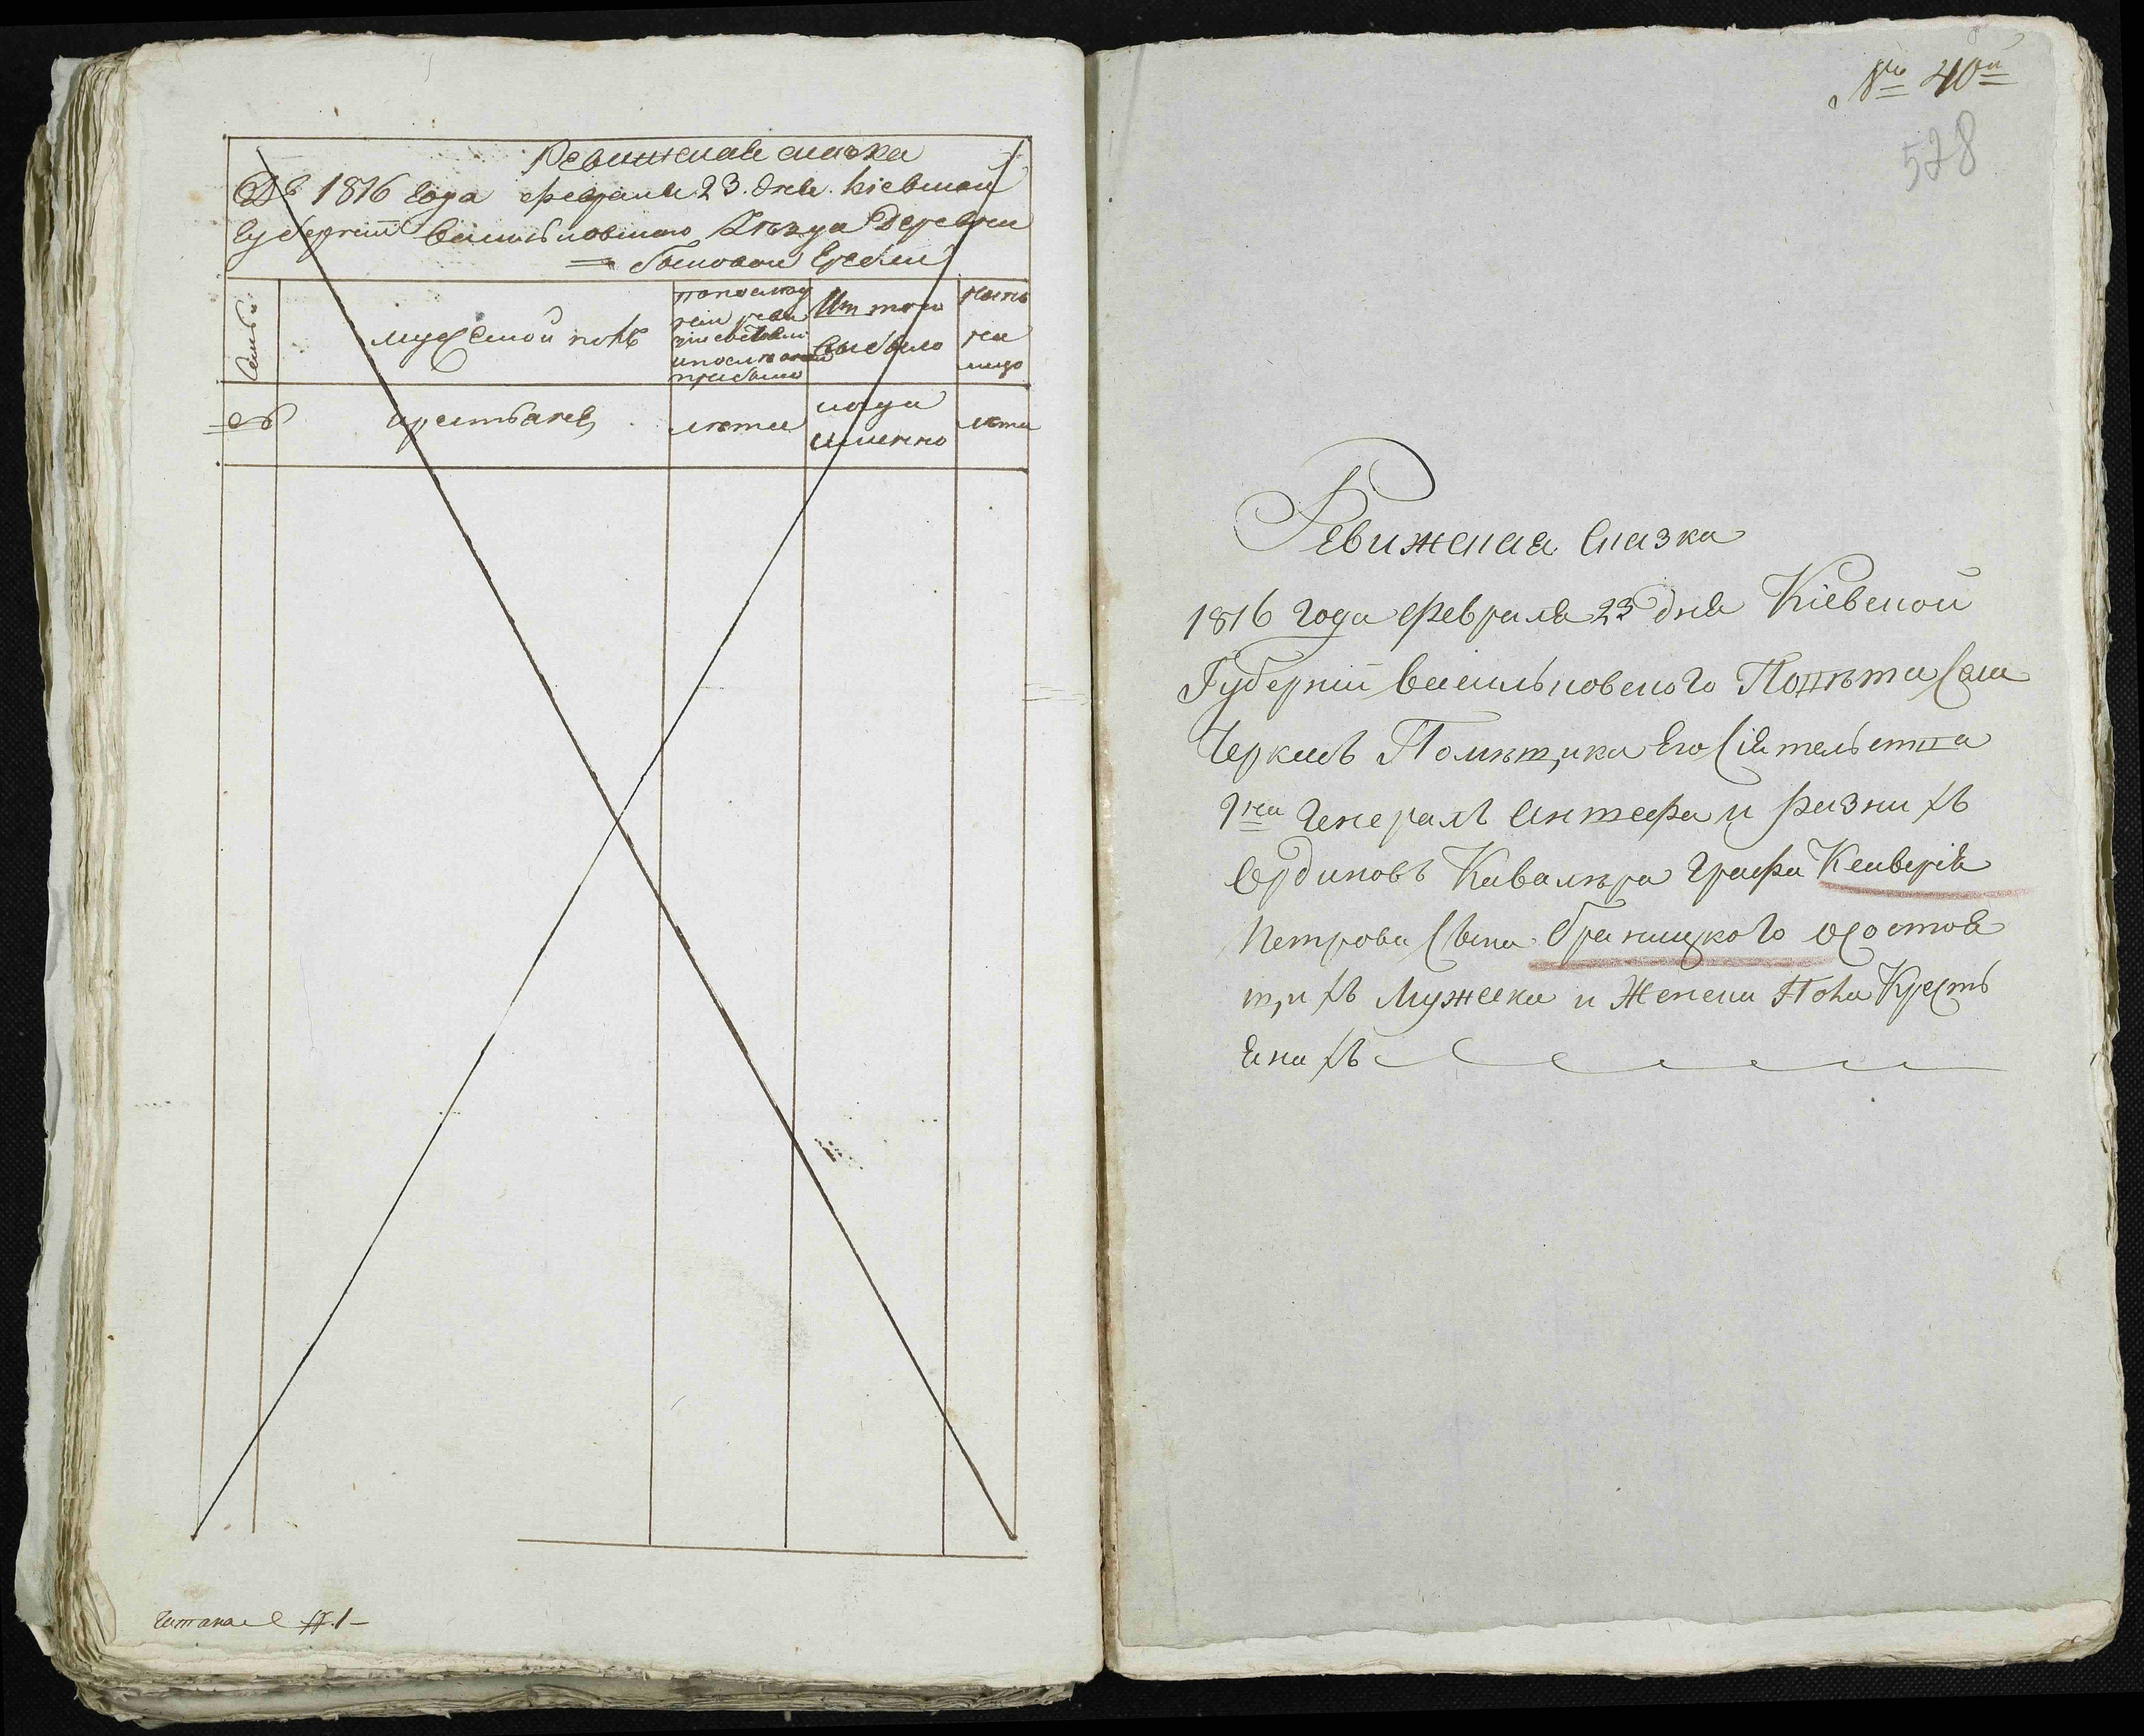 Ревижская сказка
1816 года февраля 23. дня. Кіевской
Губерніи Васильковского Уезда Деревни
Гребли
мужеской полъ
По последней
ревизіи
прибыло
Из того
выбыло
ныне
на
лицо
крестьяне
лета
когда
именно
лета
Читана
№ 40й
528
Ревижская Сказка
1816 Года Февраля 23 дня Кіевской
Губерніи Васильковского Повѣта Села
Черкасъ Помѣщика Его Сіятельства
Гна Генералъ Аншефа и разныхъ
Ординовъ Кавалѣра Графа Ксаверія
Петрова Сына Браницкого о состоя
щихъ Мужеска и Женска Пола Кресть
янахъ